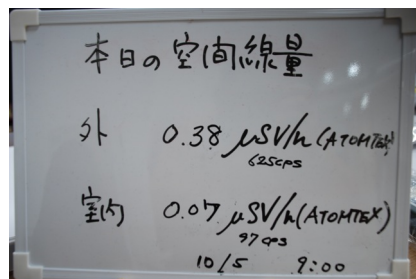 本日の空間線量
外 0.38 μSV/h (ATOMTEX)
625cps
室内 0.07 μSV/h (ATOMTEX)
97cps
10/5 9:00